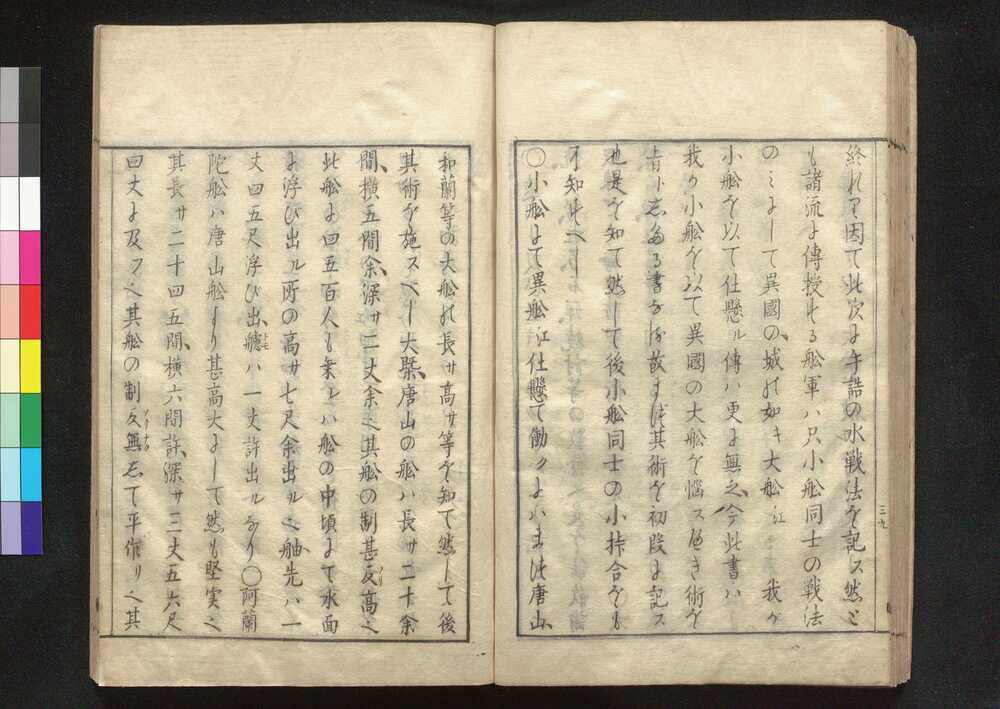 終れり因て此次よ手詰の水戦法を記ス然とも
も諸流よ傳授する舩軍ハ只小舩同士の戦法
のミよして異國の城の如キ大舩江 我か
小舩を以て仕懸ル傳ハ更よ無之今此書ハ
我か小舩を以て異國の大舩を悩ス為き術を
旨トある書なる故まつ其術を初段よ記ス
也是を知て然して後小舩同士の小持合をも
可知すへし
〇小舩よて異舩江仕懸て働クよハまつ唐山
和蘭等の大舩の長サ高サ等を知て然して後
其術を施スへし大槩唐山の舩ハ長サ二十余
間横五間余深サ二丈余也其舩の制甚反高也
此舩よ四五百人も乗ルハ舩の中頃よて水面
よ浮び出ル所の高サ七尺余出ル也舳先ハ一
丈四五尺浮び出艫ハ一丈許出ルなり〇阿蘭
陀舩ハ唐山舩より甚高大よして然も堅実也
其長サ二十四五間横六間許深サ三丈五六尺
四丈よ及フ也其舩の制反無して平作り也其
三九